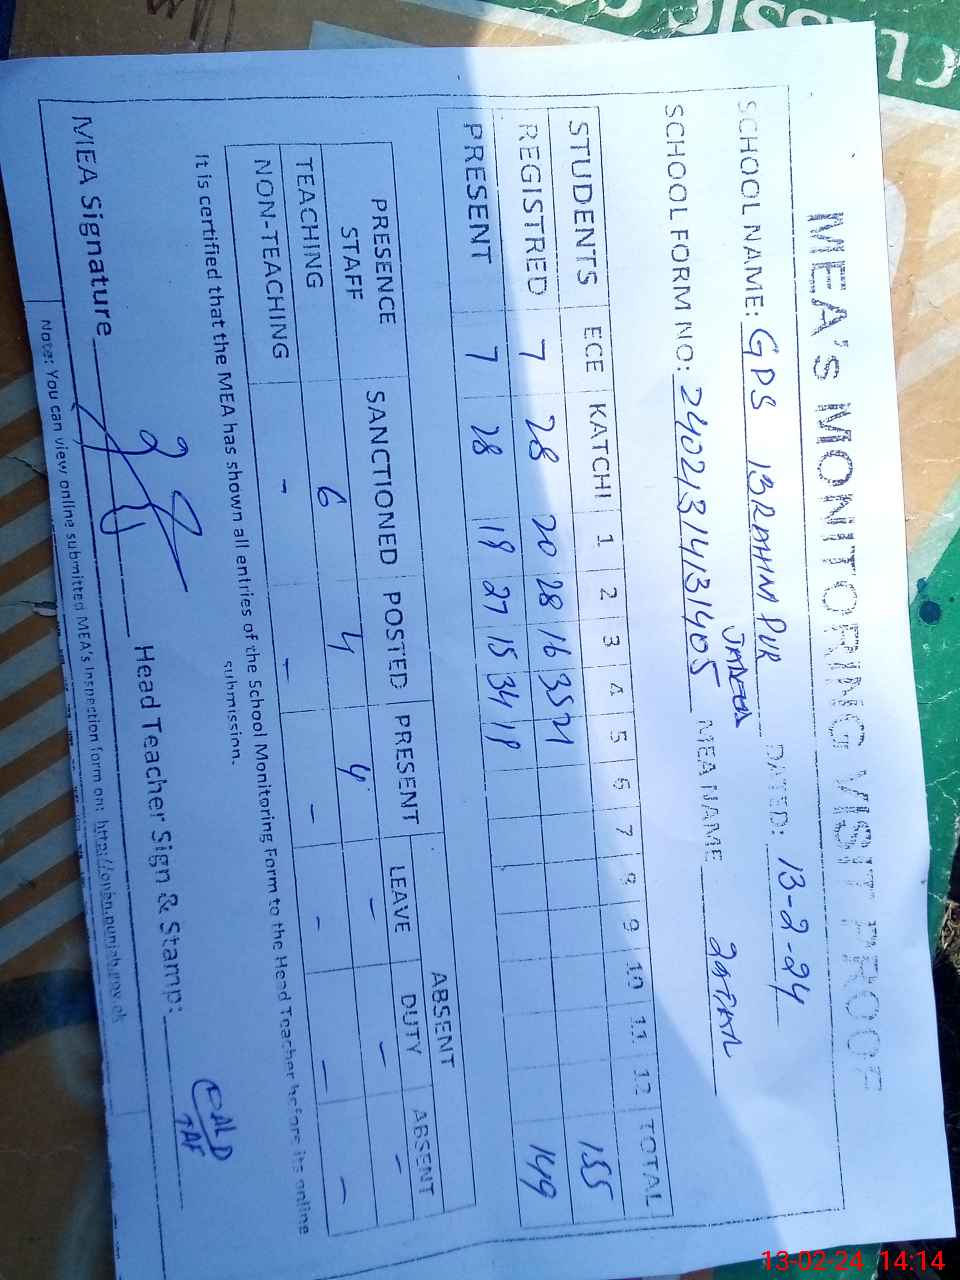 MEA's MONITORING VISIT PROOF
SCHOOL NAME: GPS IBRAHIM PUR DATED: 13-2-24
SCHOOL FORM NO: MEA NAME
STUDENTS ECE KATCHI 1 2 3 4 5 6 7 8 9 10 11 12 TOTAL
REGISTRED 7 28 20 28 16 35 21 155
PRESENT 7 28 19 27 15 34 19 149
PRESENCE STAFF SANCTIONED POSTED PRESENT ABSENT
LEAVE DUTY ABSENT
TEACHING 6 4 4 - - -
NON-TEACHING - - - - - -
It is certified that the MEA has shown all entries of the School Monitoring Form to the Head Teacher before its online
submission.
MEA Signature Head Teacher Sign & Stamp:
Note: You can view online submitted MEA's Inspection form on: http://open.punjab.gov.pk
13-02-24 14:14